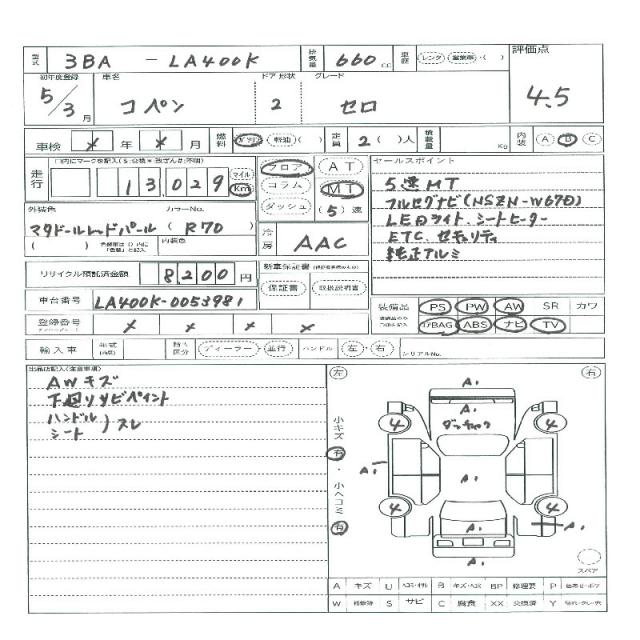 型式 3BA - LA400K 排気量 660 cc 車歴 レンタ 営業車 ・( ) 評価点
初年度登録 車名 ドア 形状 グレード
5/3月 コペン 2 セロ 4.5
車検 × 年 × 月 燃料 ガソリン 軽油 ( ) 定員 2 ( )人 積載量 Kg 内装 A B C
走行 13,029 マイル Km フロア コラム ダッシュ AT MT (5)速
セールスポイント
5速MT
フルセグナビ(NSZN-W67D)
LEDライト、シートヒーター
ETC、セキュリティ
純正アルミ
外装色 カラーNo.
マタドールレッドパール ( R70 )
内装色
冷房 AAC
リサイクル預託済金額 8200 円 新車保証書
保証書 取扱説明書
車台番号 LA400K-0053981
装備品 PS PW AW SR カワ
登録番号 × × × × ABS ナビ TV
輸入車 年式 輸入区分 ディーラー ・ 並行 ハンドル 左 ・ 右 シリアルNo.
出品店記入(注意事項)
AWキズ
下廻りサビペイント
ハンドル
シート ) スレ
左 右
小キズ 有 ・ 小ヘコミ 有
A1
A1
ダッチャク
4 4
A1 A1
A1
4 4
A1
A1
スペア
A キズ U B キズ・ヘコミ BP 修理要 P
W 修理跡 S サビ C 腐食 XX 交換済 Y